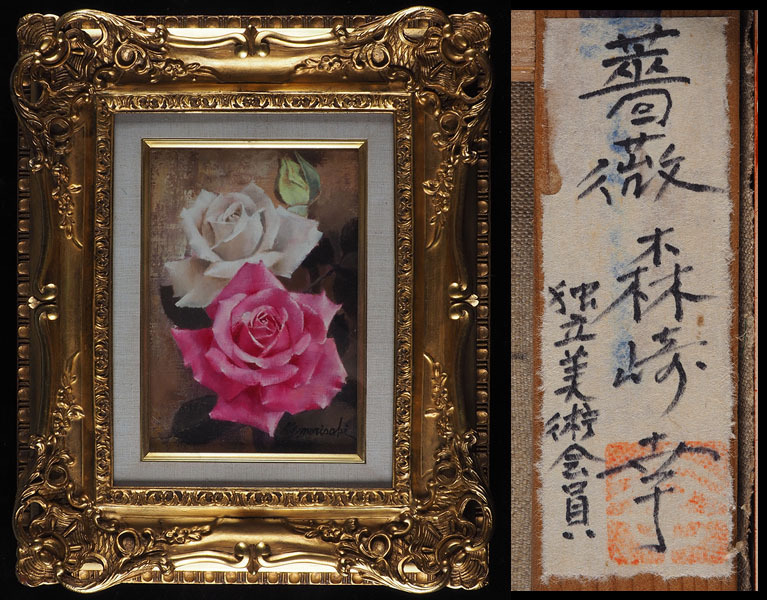 morisaki
薔薇 森崎 幸
独立美術会員